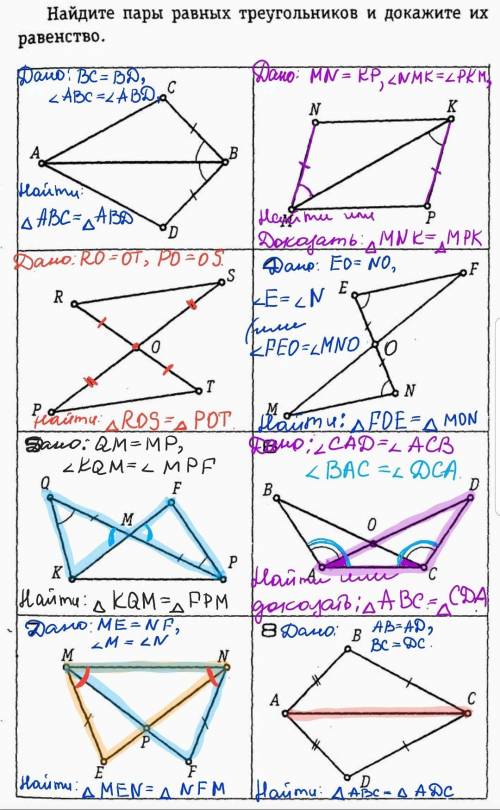 Найдите пары равных треугольников и докажите их
равенство.
Дано: BC = BD,
∠ABC = ∠ABD,
C
A
B
D
Найти:
△ABC = △ABD
Дано: MN = KP, ∠NMK = ∠PKM,
N
K
M
P
Найти или
Доказать: △MNK = △MPK
Дано: RO = OT, PO = OS.
S
R
O
T
P
Найти: △ROS = △POT.
Дано: EO = NO,
∠E = ∠N
(или
∠FEO = ∠MNO
F
E
O
N
M
Найти: △FOE = △MON
Дано: QM = MP,
∠KQM = ∠MPF
Q
F
M
K
P
Найти: △KQM = △FPM
Дано: ∠CAD = ∠ACB
∠BAC = ∠DCA.
B
D
O
A
C
Найти или
доказать: △ABC = △CDA
Дано: ME = NF,
∠M = ∠N
M
N
P
E
F
Найти: △MEN = △NFM
8 Дано: AB = AD,
BC = DC.
B
A
C
D
Найти: △ABC = △ADC